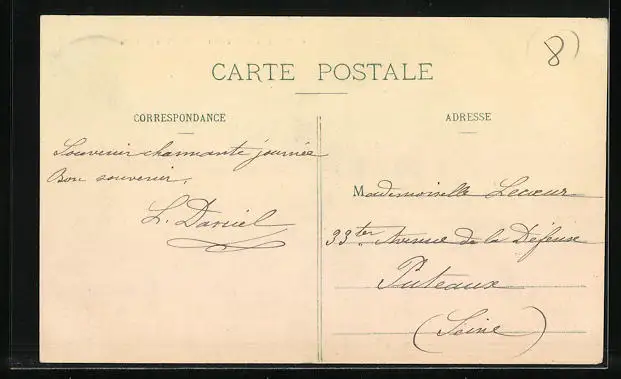 8
CARTE POSTALE
CORRESPONDANCE
ADRESSE
Souvenir charmante journée
Bon souvenir.
L. Daniel
Mademoiselle Lecœur
33ter Avenue de la Défense
Puteaux
(Seine)